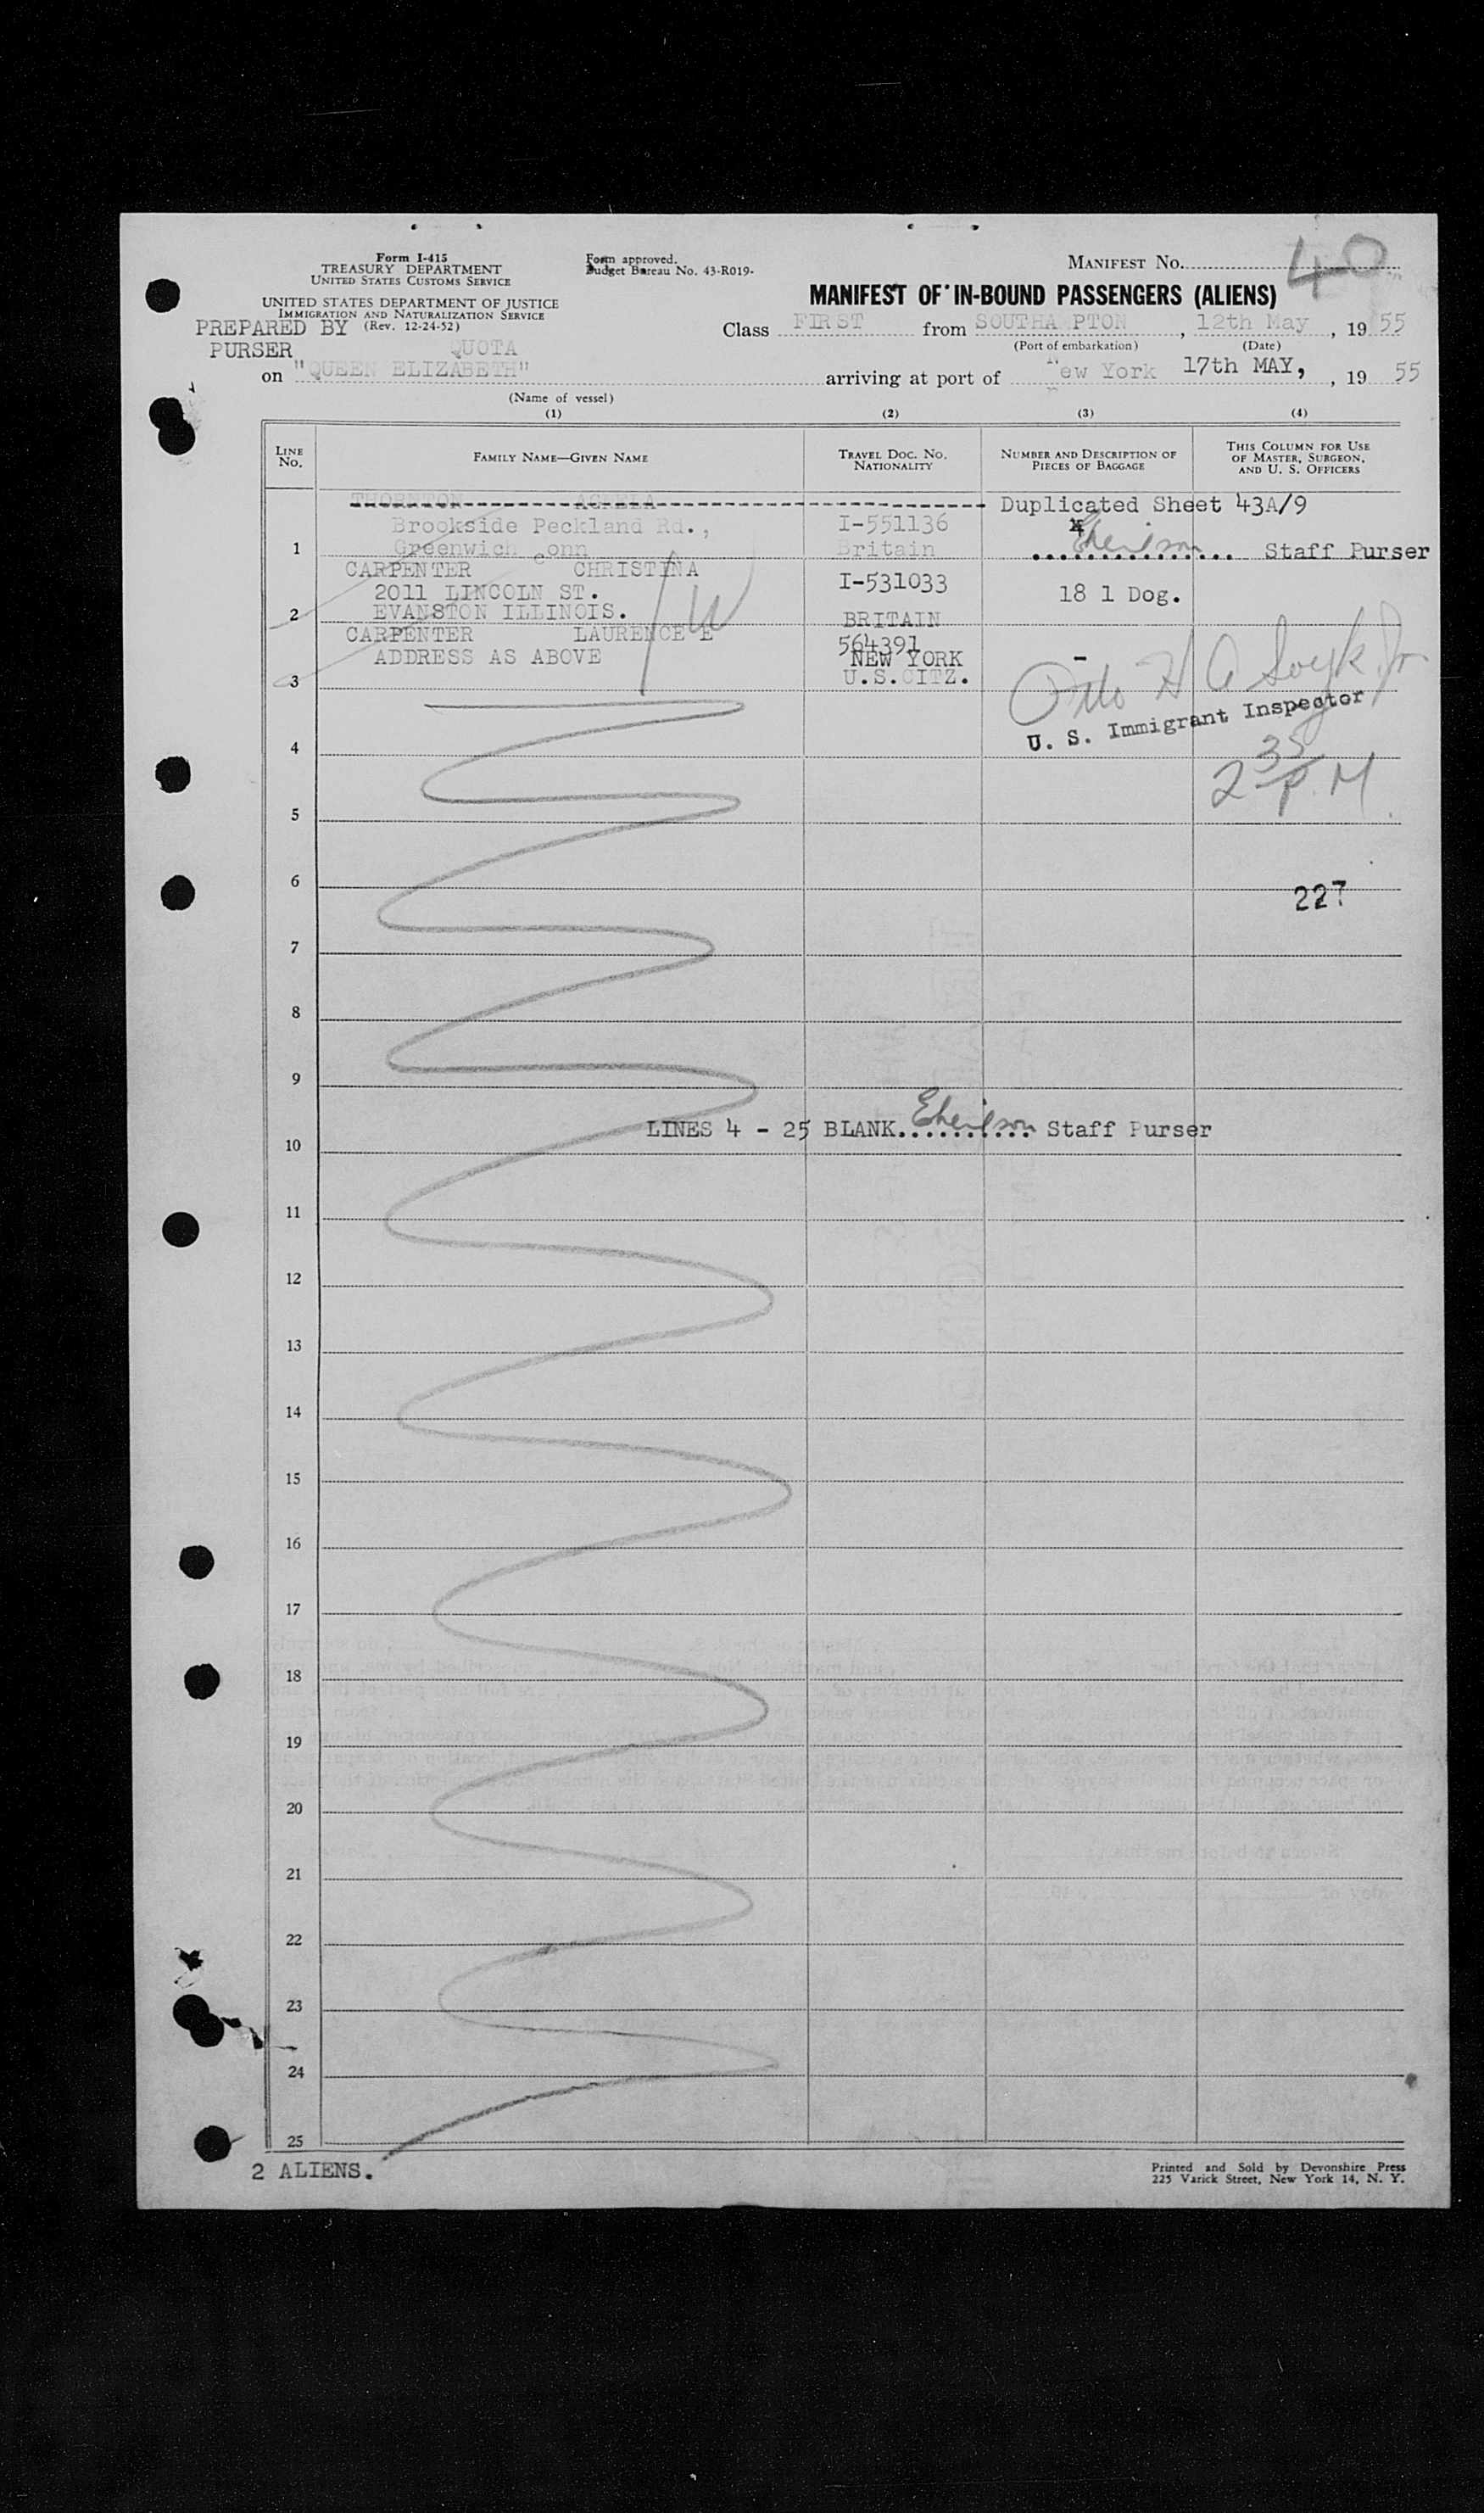 Form I-415
TREASURY DEPARTMENT
UNITED STATES CUSTOMS SERVICE
UNITED STATES DEPARTMENT OF JUSTICE
IMMIGRATION AND NATURALIZATION SERVICE
(Rev. 12-24-52)
PREPARED BY
PURSER
QUOTA
Form approved.
Budget Bureau No. 43-R019-
MANIFEST NO. 40
MANIFEST OF IN-BOUND PASSENGERS (ALIENS)
Class FIRST from SOUTHA PTON, 12th May, 1955
(Port of embarkation) (Date)
on "QUEEN ELIZABETH" arriving at port of New York 17th MAY, 1955
(Name of vessel)
(1) (2) (3) (4)
LINE NO.
FAMILY NAME—GIVEN NAME
TRAVEL DOC. NO. NATIONALITY
NUMBER AND DESCRIPTION OF PIECES OF BAGGAGE
THIS COLUMN FOR USE OF MASTER, SURGEON, AND U. S. OFFICERS
THORNTON Duplicated Sheet 43A/9
Brookside Peckland Rd., I-551136 4
1 Greenwich Conn Britain Staff Purser
CARPENTER CHRISTINA I-531033
2011 LINCOLN ST. 18 1 Dog.
2 EVANSTON ILLINOIS. BRITAIN
CARPENTER LAURENCE E 564391
ADDRESS AS ABOVE NEW YORK -
3 U.S. CITZ.
U. S. Immigrant Inspector
4
2 35 P.M.
5
6 227
7
8
9
LINES 4 - 25 BLANK. Staff Purser
10
11
12
13
14
15
16
17
18
19
20
21
22
23
24
25
2 ALIENS.
Printed and Sold by Devonshire Press
225 Varick Street, New York 14, N. Y.